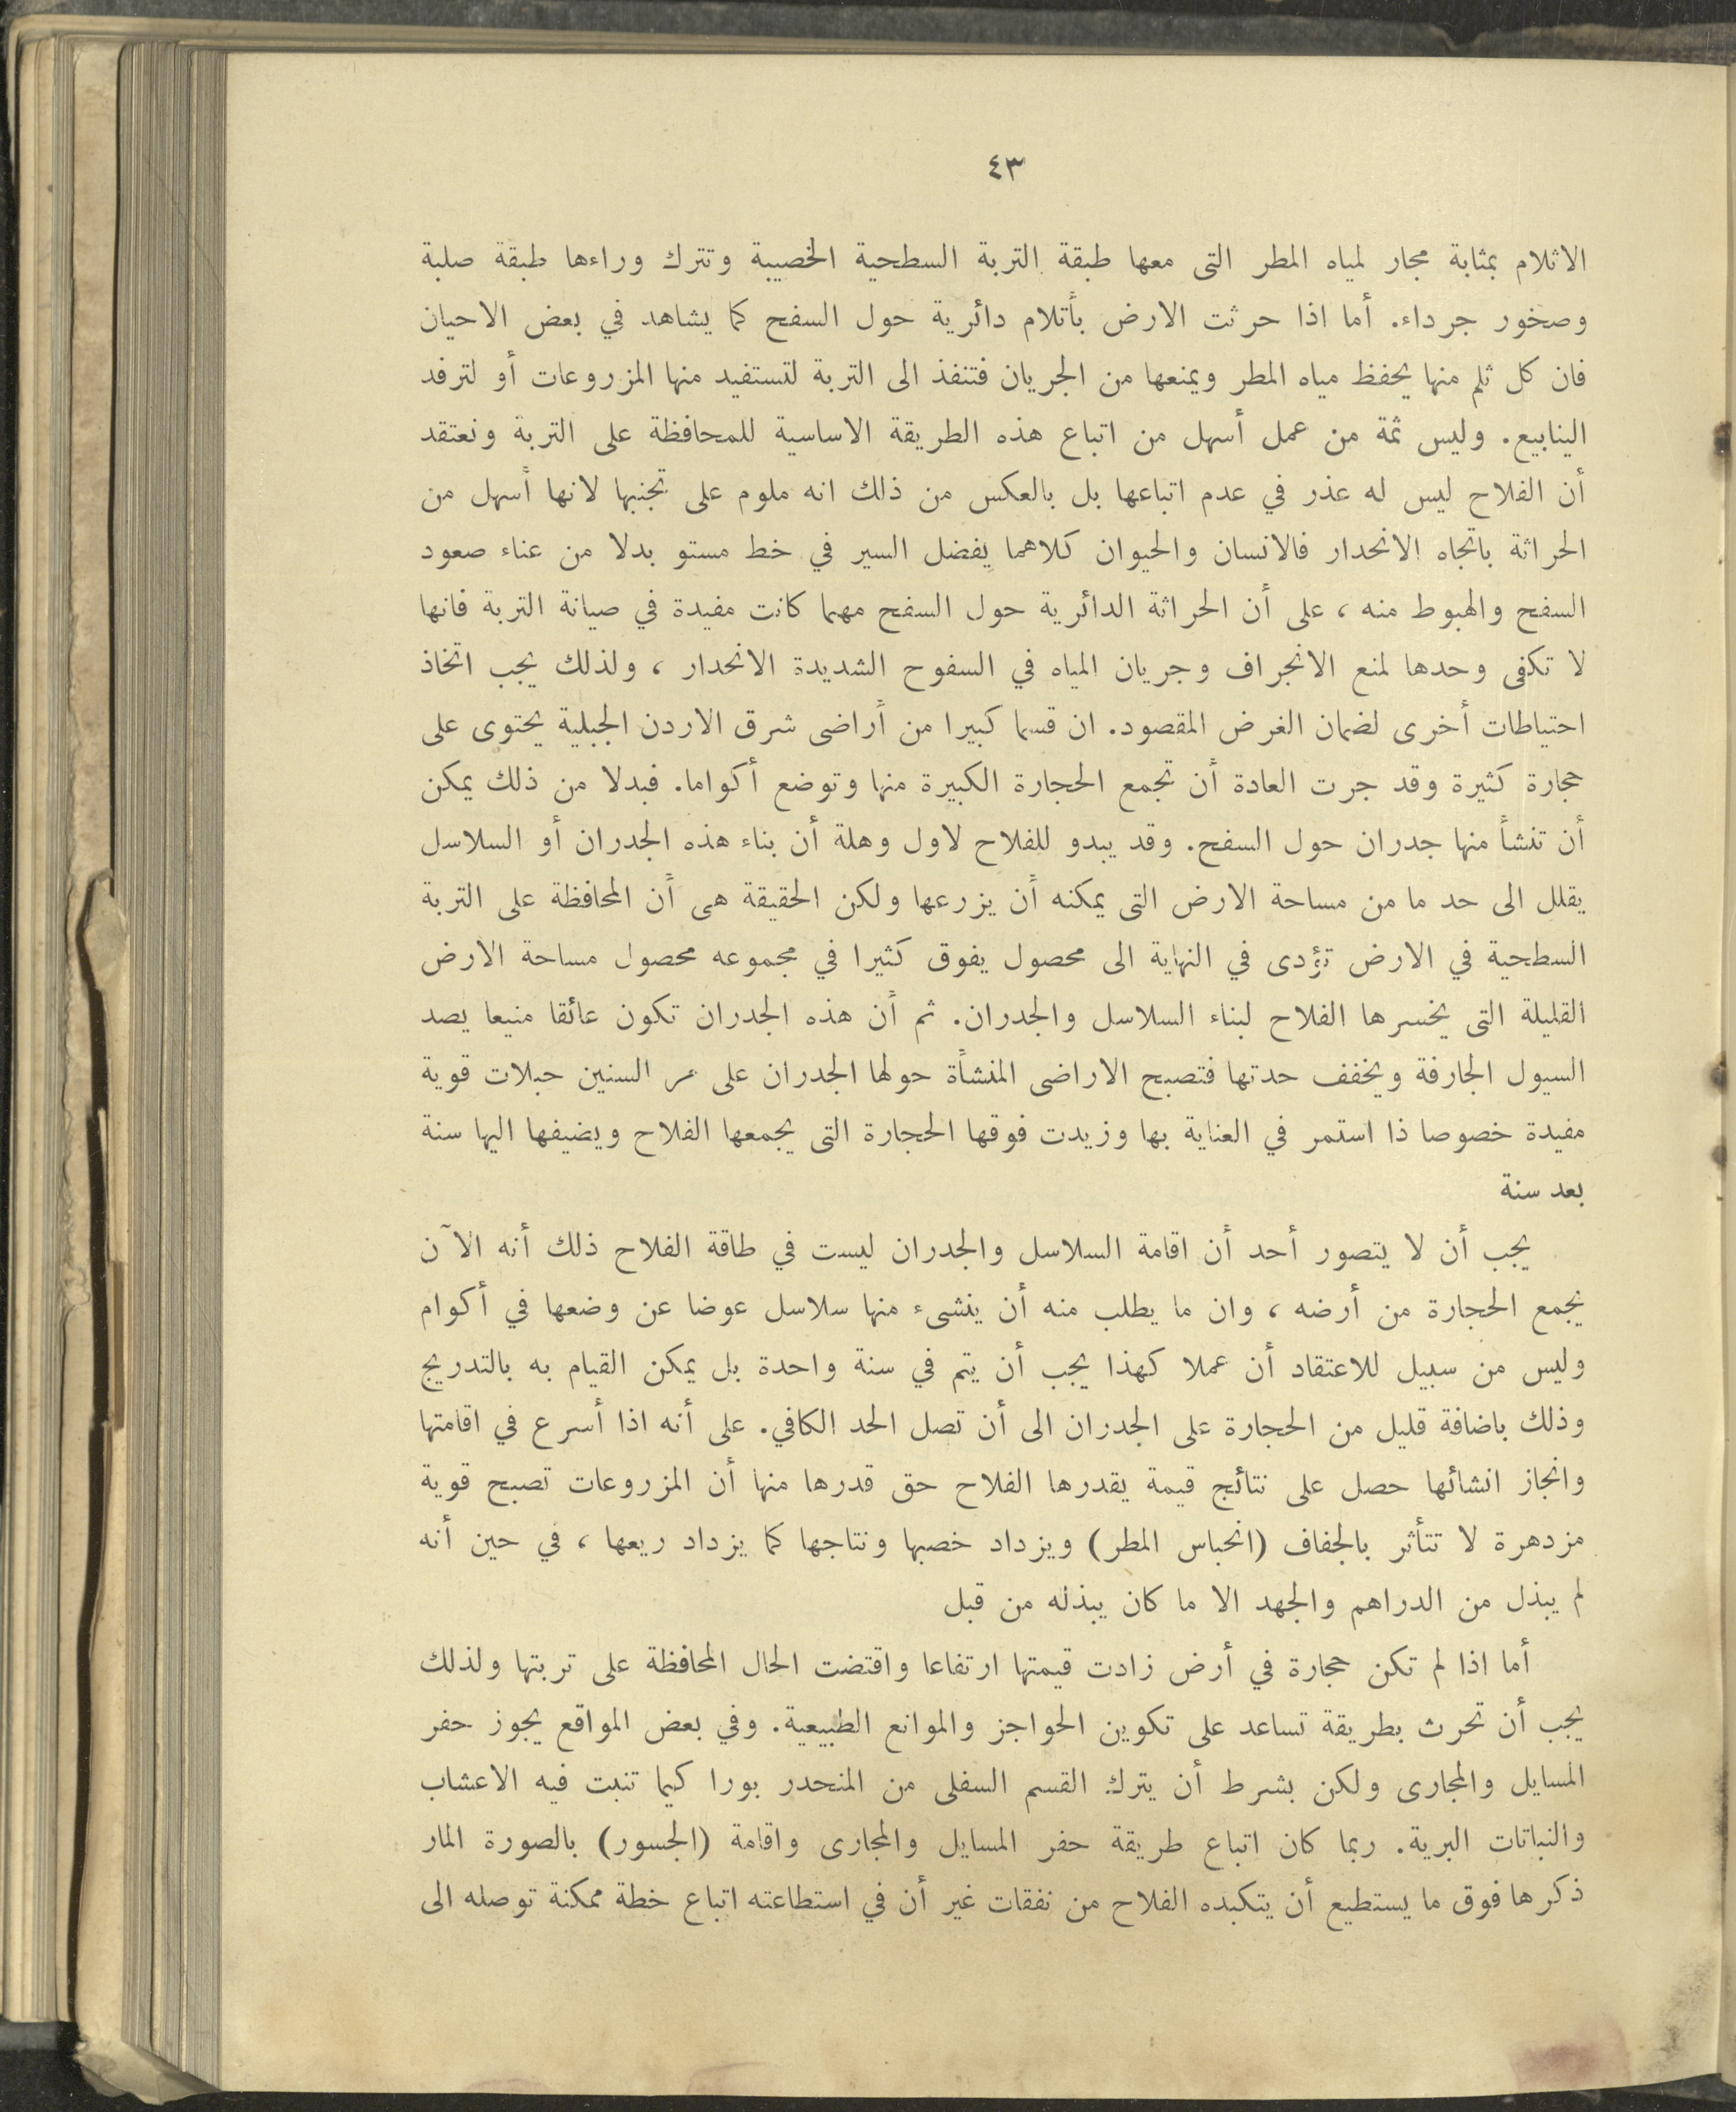 ٤٣
الاثلام بمثابة مجار لمياه المطر التى معها طبقة التربة السطحية الخصيبة وتترك وراءها طبقة صلبة
وصخور جرداء. أما اذا حرثت الارض بأتلام دائرية حول السفح كما يشاهد في بعض الاحيان
فان كل ثلم منها يحفظ مياه المطر ويمنعها من الجريان فتنفذ الى التربة لتستفيد منها المزروعات أو لترفد
الينابيع. وليس ثمة من عمل أسهل من اتباع هذه الطريقة الاساسية للمحافظة على التربة ونعتقد
أن الفلاح ليس له عذر في عدم اتباعها بل بالعكس من ذلك انه ملوم على تجنبها لانها أسهل من
الحراثة باتجاه الانحدار فالانسان والحيوان كلاهما يفضل السير في خط مستو بدلا من عناء صعود
السفح والهبوط منه ، على أن الحراثة الدائرية حول السفح مهما كانت مفيدة في صيانة التربة فانها
لا تكفى وحدها لمنع الانجراف وجريان المياه في السفوح الشديدة الانحدار ، ولذلك يجب اتخاذ
احتياطات أخرى لضمان الغرض المقصود. ان قسما كبيرا من أراضى شرق الاردن الجبلية يحتوى على
حجارة كثيرة وقد جرت العادة أن تجمع الحجارة الكبيرة منها وتوضع أكواما. فبدلا من ذلك يمكن
أن تنشأ منها جدران حول السفح. وقد يبدو للفلاح لاول وهلة أن بناء هذه الجدران أو السلاسل
يقلل الى حد ما من مساحة الارض التى يمكنه أن يزرعها ولكن الحقيقة هى أن المحافظة على التربة
السطحية في الارض تؤدى في النهاية الى محصول يفوق كثيرا في مجموعه محصول مساحة الارض
القليلة التى يخسرها الفلاح لبناء السلاسل والجدران. ثم أن هذه الجدران تكون عائقا منيعا يصد
السيول الجارفة ويخفف حدتها فتصبح الاراضى المنشأة حولها الجدران على مر السنين حبلات قوية
مفيدة خصوصا ذا استمر في العناية بها وزيدت فوقها الحجارة التى يجمعها الفلاح ويضيفها اليها سنة
بعد سنة
يجب أن لا يتصور أحد أن اقامة السلاسل والجدران ليست في طاقة الفلاح ذلك أنه الآن
يجمع الحجارة من أرضه ، وان ما يطلب منه أن ينشىء منها سلاسل عوضا عن وضعها في أكوام
وليس من سبيل للاعتقاد أن عملا كهذا يجب أن يتم في سنة واحدة بل يمكن القيام به بالتدريج
وذلك باضافة قليل من الحجارة على الجدران الى أن تصل الحد الكافي. على أنه اذا أسرع في اقامتها
وانجاز انشائها حصل على نتائج قيمة يقدرها الفلاح حق قدرها منها أن المزروعات تصبح قوية
مزدهرة لا تتأثر بالجفاف (انحباس المطر) ويزداد خصبها ونتاجها كما يزداد ريعها ، في حين أنه
لم يبذل من الدراهم والجهد الا ما كان يبذله من قبل
أما اذا لم تكن حجارة في أرض زادت قيمتها ارتفاعا واقتضت الحال المحافظة على تربتها ولذلك
يجب أن تحرث بطريقة تساعد على تكوين الحواجز والموانع الطبيعية. وفي بعض المواقع يجوز حفر
المسايل والمجارى ولكن بشرط أن يترك القسم السفلى من المنحدر بورا كيما تنبت فيه الاعشاب
والنباتات البرية. ربما كان اتباع طريقة حفر المسايل والمجارى واقامة (الجسور) بالصورة المار
ذكرها فوق ما يستطيع أن يتكبده الفلاح من نفقات غير أن في استطاعته اتباع خطة ممكنة توصله الى